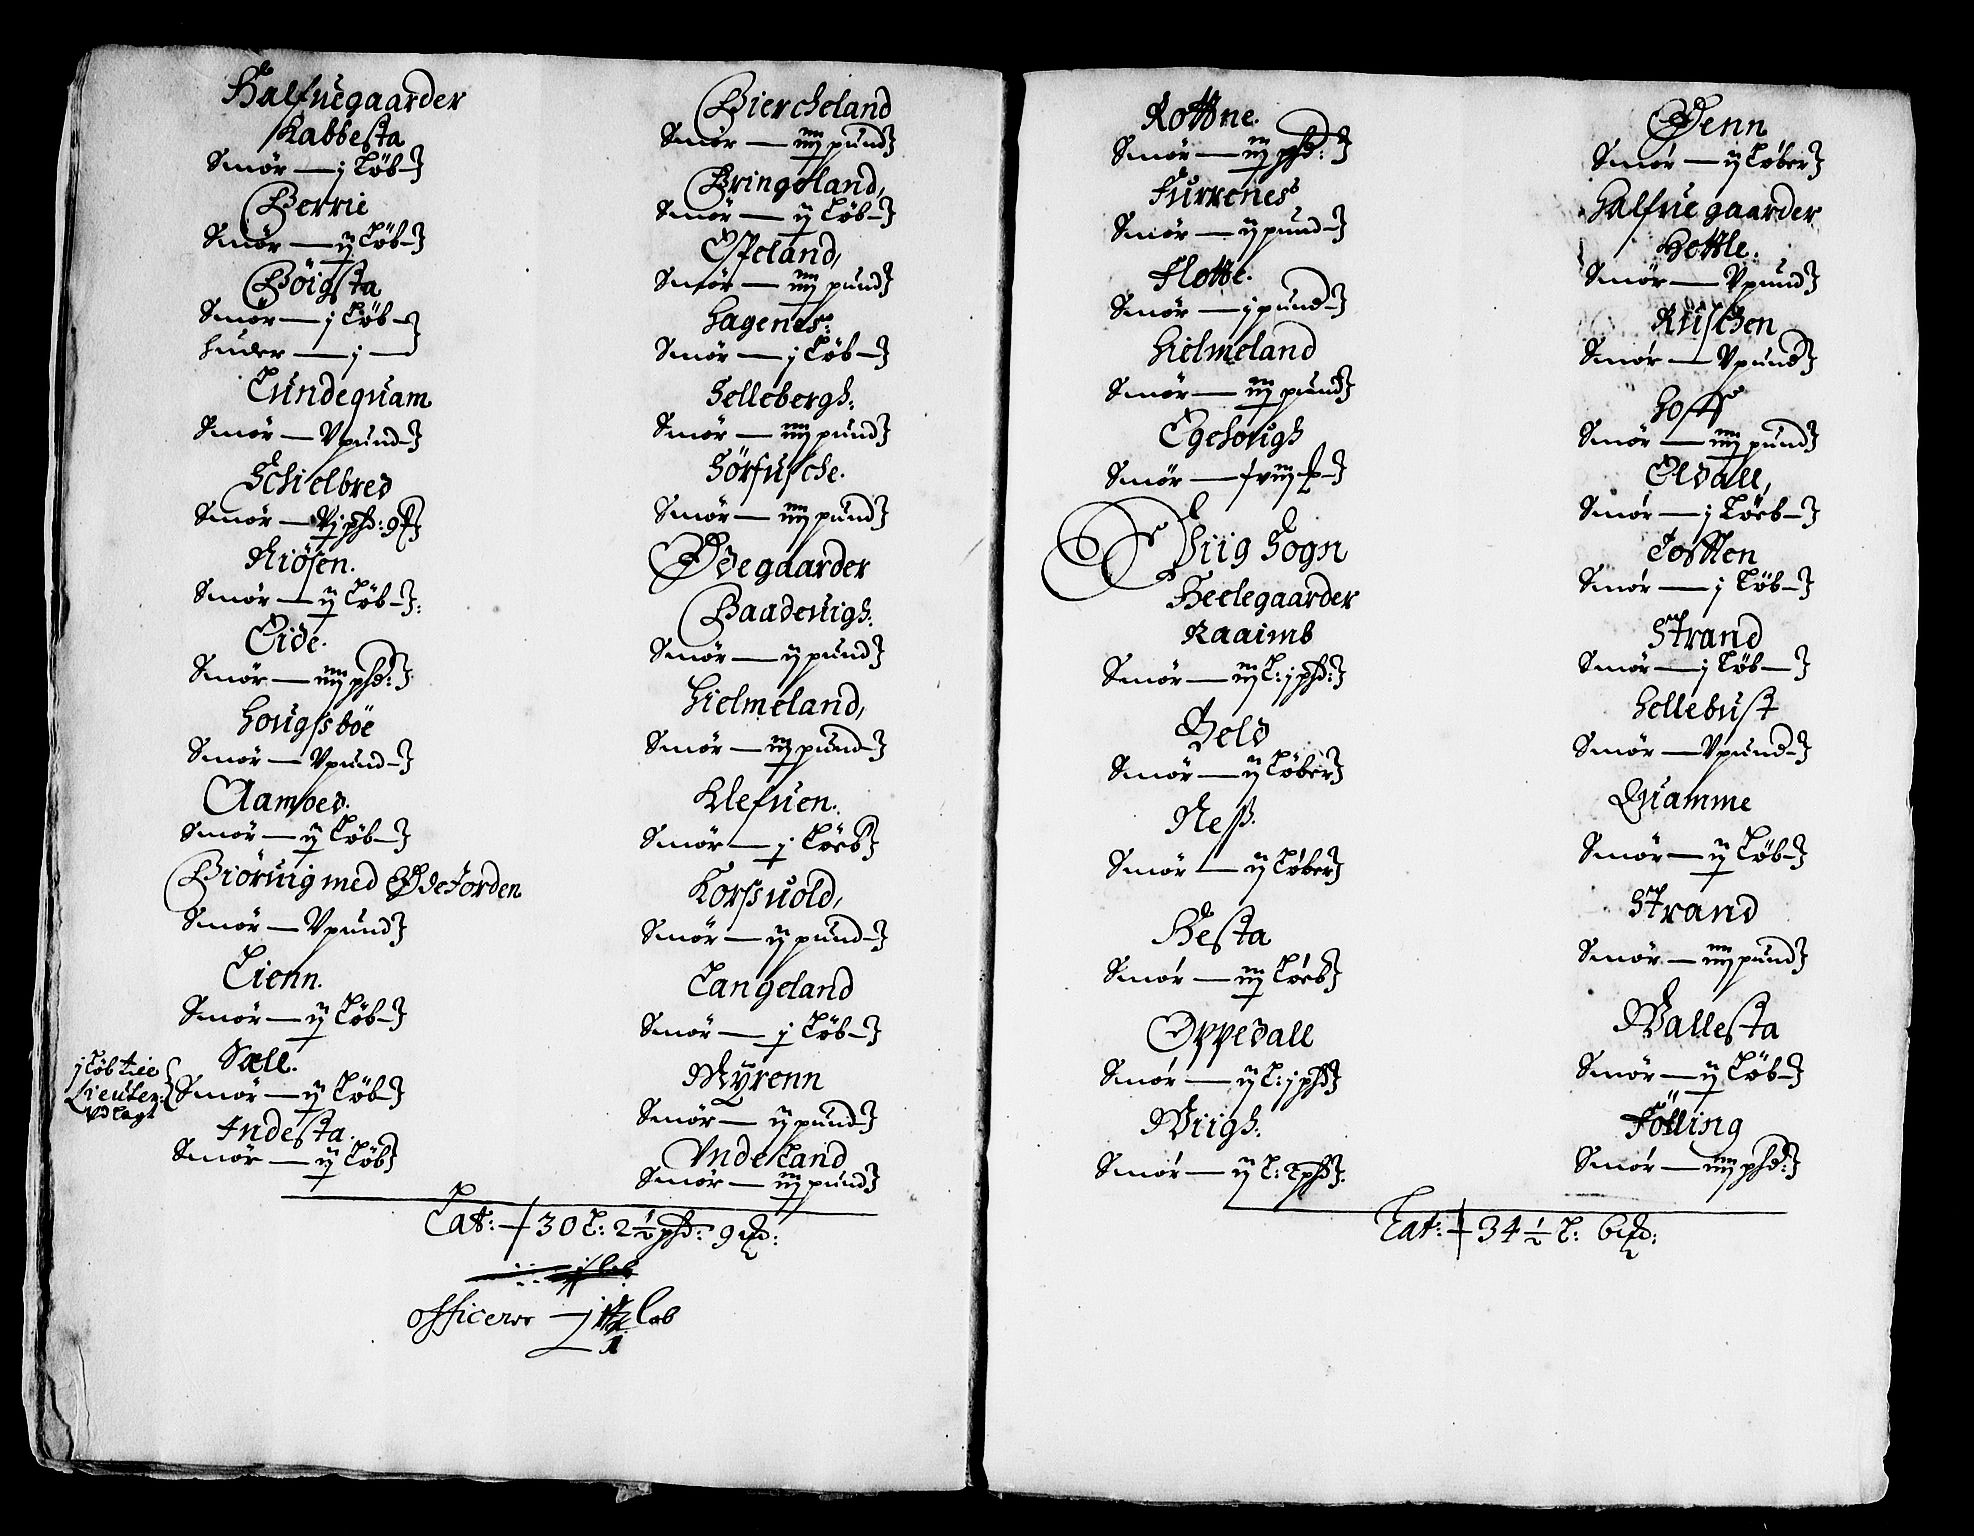 Halfuegaarder
Rabbesta
Smör — j Löb
Berrie
Smör — ij Löb
Böigsta
Smör — j Löb
huder — j —
Lundequam
Smör — V pund
Schielbred
Smör — Vj pd: 9
Kiösen.
Smör — ij Löb
Eide.
Smör — iiij pd:
Hougsböe
Smör — V pund
Aamoed.
Smör — ij Löb
Biöruig med Ödejorden
Smör — V pund
Lienn.
Smör — ij Löb
Sæll.
j löb till
Lieuten:
Vdlagt
Smör — ij Löb
Indesta.
Smör — ij Löb
Biercheland
Smör — iiij pund
Bringeland,
Smör — ij Löb
Espeland,
Smör — iiij pund
Hagenes:
Smör — j Löb
Hellebergh:
Smör — iiij pund
Sörfusche.
Smör — iiij pund
Ödegaarder
Baadeuigh:
Smör — ij pund
Hielmeland,
Smör — iij pund
Klefuen.
Smör — j Löeb
Korsuold,
Smör — ij pund
Langeland
Smör — j Löb
Myrenn
Smör — ij pund
Vndeland
Smör — iij pund
Lat: — 30 L: 2 1/2 pd: 9
officerer — Löb
Rottne.
Smör — iij pd:
Furrenes
Smör — ij pund
Flotte.
Smör — j pund
Hielmeland
Smör — iij pund
Egehough
Smör —
Viig Sogn
Heelegaarder
Raaimb
Smör — iij L: j pd:
Beld
Smör — ij Löber
Ness.
Smör — ij Löber
Hesta
Smör — iij Löeb
Oppedall
Smör — ij L: j pd
Wiigh:
Smör — ij L: 2 pd
Denn
Smör — ij Löber
Halfuegaarder
Hettle:
Smör — V pund
Ruschen
Smör — V pund
Hoff
Smör — iiij pund
Oldall,
Smör — j Löeb
Josten
Smör — j Löb
Strand
Smör — j Löb
Hellebust
Smör — V pund
Quamme
Smör — ij Löb
Strand
Smör — iiij pund
Wallesta
Smör — ij Löb
Fölling
Smör — iiij pd:
Lat: — 34 1/2 L: 6